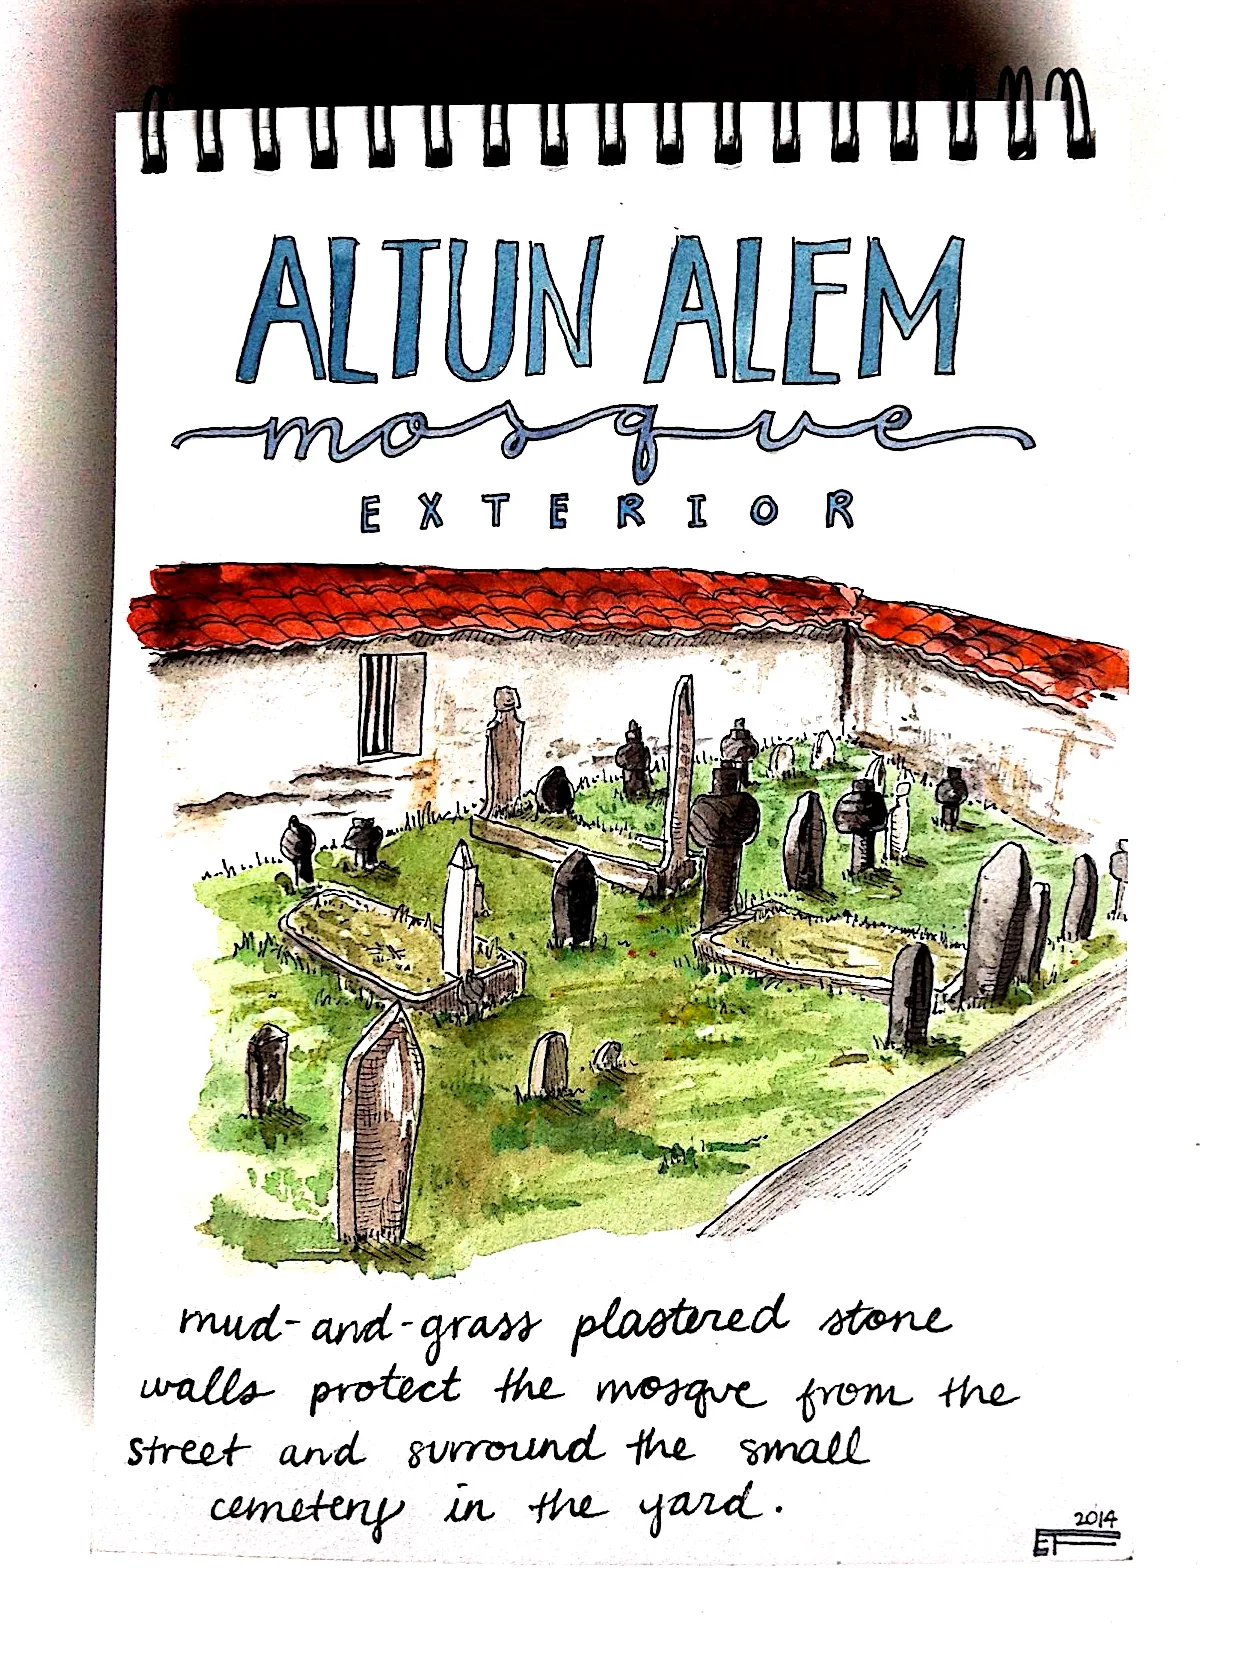 ALTUN ALEM
mosque
EXTERIOR
mud-and-grass plastered stone
walls protect the mosque from the
street and surround the small
cemetery in the yard.
2014